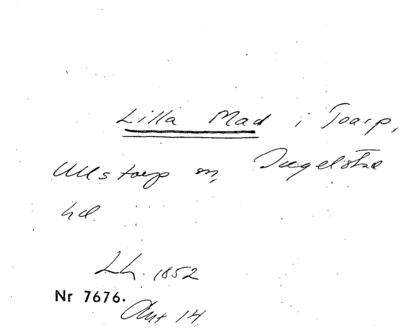 Lilla Mad i Toarp,
Ullstorp sn, Ingelstad
hd
Lh. 1852
Nr 7676.
Akt 14